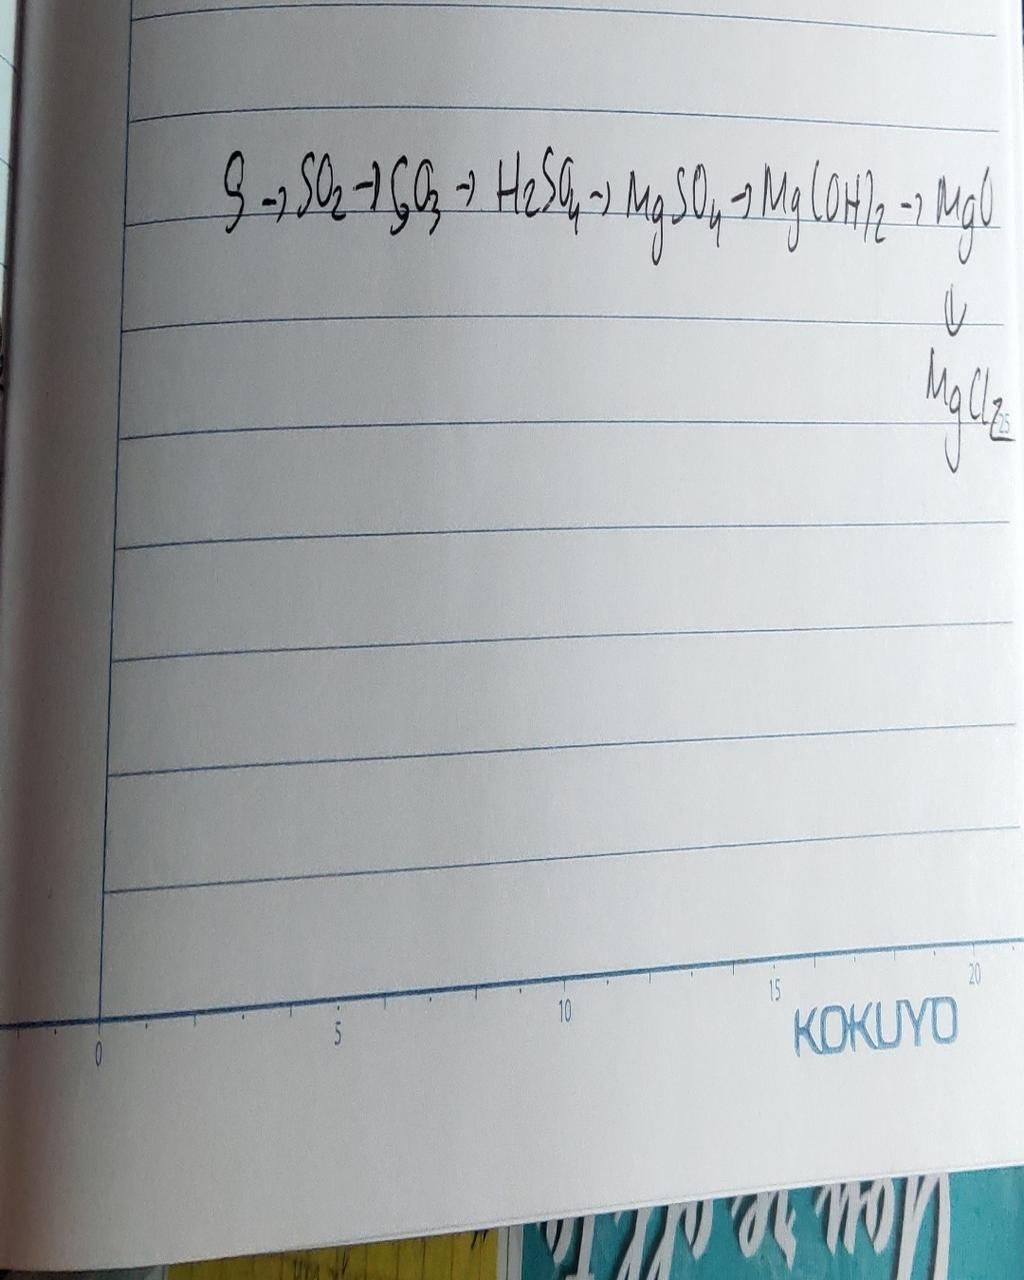 S → SO2 → SO3 → H2SO4 → MgSO4 → Mg(OH)2 → MgO
↓
MgCl2
25
0 5 10 15 20
KOKUYO